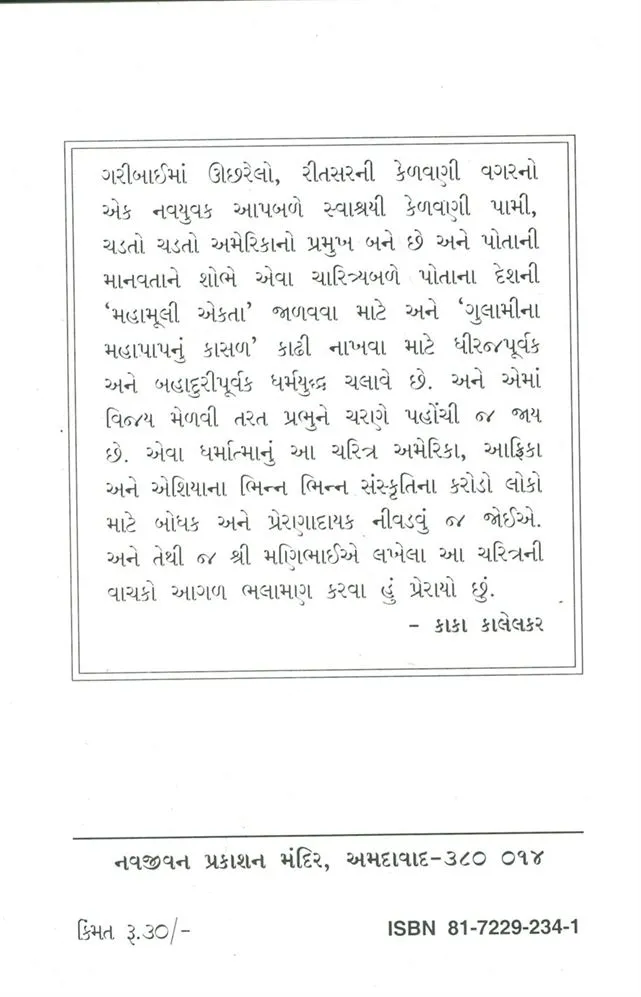 ગરીબાઈમાં ઊછરેલો, રીતસરની કેળવણી વગરનો
એક નવયુવક આપબળે સ્વાશ્રયી કેળવણી પામી,
ચડતો ચડતો અમેરિકાનો પ્રમુખ બને છે અને પોતાની
માનવતાને શોભે એવા ચારિત્ર્યબળે પોતાના દેશની
‘મહામૂલી એકતા’ જાળવવા માટે અને ‘ગુલામીના
મહાપાપનું કાસળ’ કાઢી નાખવા માટે ધીરજપૂર્વક
અને બહાદુરીપૂર્વક ધર્મયુદ્ધ ચલાવે છે. અને એમાં
વિજય મેળવી તરત પ્રભુને ચરણે પહોંચી જ જાય
છે. એવા ધર્માત્માનું આ ચરિત્ર અમેરિકા, આફ્રિકા
અને એશિયાના ભિન્ન ભિન્ન સંસ્કૃતિના કરોડો લોકો
માટે બોધક અને પ્રેરણાદાયક નીવડવું જ જોઈએ.
અને તેથી જ શ્રી મણિભાઈએ લખેલા આ ચરિત્રની
વાચકો આગળ ભલામણ કરવા હું પ્રેરાયો છું.
– કાકા કાલેલકર
નવજીવન પ્રકાશન મંદિર, અમદાવાદ-૩૮૦ ૦૧૪
કિંમત રૂ.૩૦/-
ISBN 81-7229-234-1